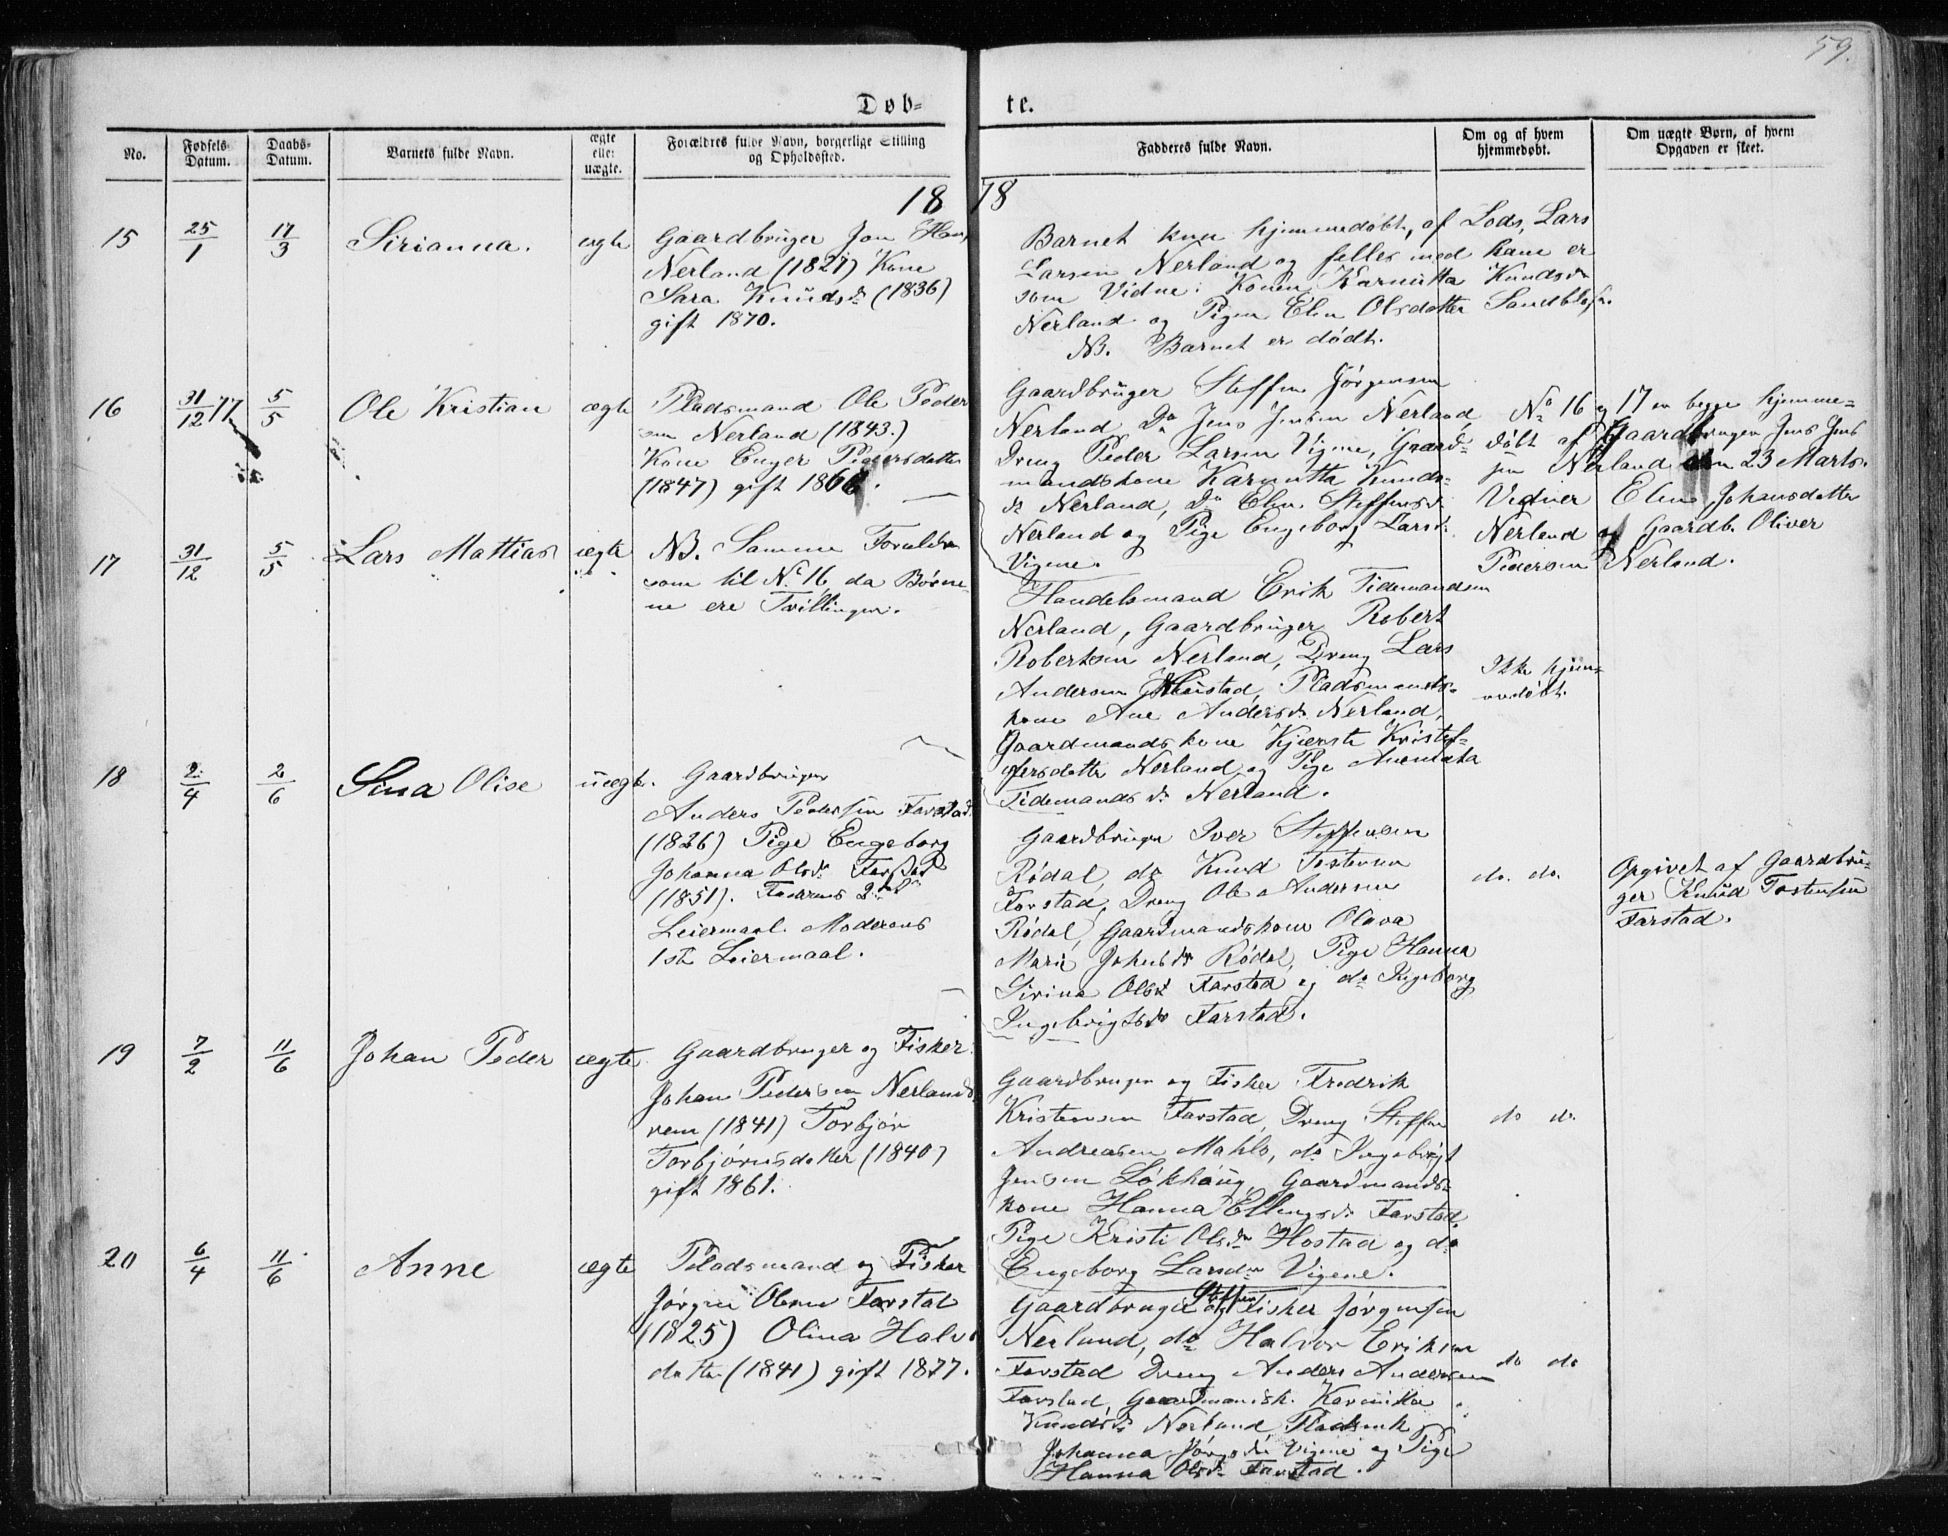 59.
Døb- te.
No.
Fødsels-
Datum.
Daabs-
Datum.
Barnets fulde Navn.
ægte
eller
uægte.
Forældres fulde Navn, borgerlige Stilling
og Opholdssted.
Fadderes fulde Navn.
Om og af hvem
hjemmedøbt.
Om uægte Børn, af hvem
Opgaven er skeet.
1878
15
25/1
17/3
Sirianna.
ægte
Gaardbruger Jon
Nerland (1827) Kone
Sara Knudsdr (1836)
gift 1870.
Barnet kun hjemmedøbt, af Lods, Lars
Larsen Nerland og felles med ham er
som Vidne: Konen Karnitta Knudsdr
Nerland og Pigen Elen Olsdatter
NB. Barnet er dødt.
16
31/12 77
5/5
Ole Kristian
ægte
Pladsmand Ole Peder
sen Nerland (1843.)
Kone Enger Pedersdatter
(1847) gift 1866.
Gaardbruger Steffen Jørgensen
Nerland Do Jens Jensen Nerland,
Dreng Peder Larsen Vigene, Gaard-
mandskone Karnitta Knuds-
dr Nerland, Do Elen Steffensdr
Nerland og Pige Engeborg Larsdr
Vigene.
No 16 og 17 er begge hjemme-
døbt af Gaardbruger Jens Jens
sen Nerland den 23 Marts.
Vidner Elen Johansdatter
Nerland og Gaardb. Oliver
Pedersen Nerland.
17
31/12
5/5
Lars Mattias
ægte
NB. Samme Forældre
som til No 16, da Børne-
ne ere Tvillinger.
Handelsmand Erik Tidemandsen
Nerland, Gaardbruger Robert
Robertsen Nerland, Dreng Lars
Andersen Pladsmands-
kone Ane Andersdr Nerland,
Gaardmandskone Kjærsti Kristof-
fersdatter Nerland og Pige
Tidemandsdr Nerland.
Ikke hjem-
medøbt.
18
2/4
2/6
Sina Olise
uægte.
Gaardbruger
Anders Pedersen Farstad
(1826) Pige Engeborg
Johanna Olsdr Farstad
(1851). Faderens 2det
Leiermaal. Moderens
1ste Leiermaal.
Gaardbruger Iver Steffensen
Rødal, do Knud Tostensen
Farstad, Dreng Ole Andersen
Rødal, Gaardmandskone Olava
Marie Rødal, Pige Hanna
Sirina Olsdr Farstad og do Ingeborg
Ingebrigtsdr Farstad.
do. do.
Opgivet af Gaardbru-
ger Knud Tostensen
Farstad.
19
7/2
11/6
Johan Peder
ægte.
Gaardbruger og Fisker
Johan Pedersen Nerlands
vem (1841) Torbjør
Torbjørnsdatter (1840)
gift 1861.
Gaardbruger og Fisker Fredrik
Kristensen Farstad, Dreng Steffen
Andreasen Mahlo, do Ingebrigt
Jensen Løkhaug, Gaardmands-
kone Hanna Ellingsdr Farstad,
Pige Kristi Olsdr Hostad og do
Engeborg Larsdr Vigene.
do do.
20
6/4
11/6
Anne
ægte
Pladsmand og Fisker
Jørgen Olsen Farstad
(1825) Olina Halvors
datter (1841) gift 1877.
Gaardbruger og Fisker Steffen Jørgensen
Nerland, do Halvor Eriksen
Farstad Dreng Anders Andersen
Farstad, Gaardmandsk. Karnitta
Knudsdr Nerland,
Johanna Vigene og Pige
Hanna Olsdr Farstad.
do do